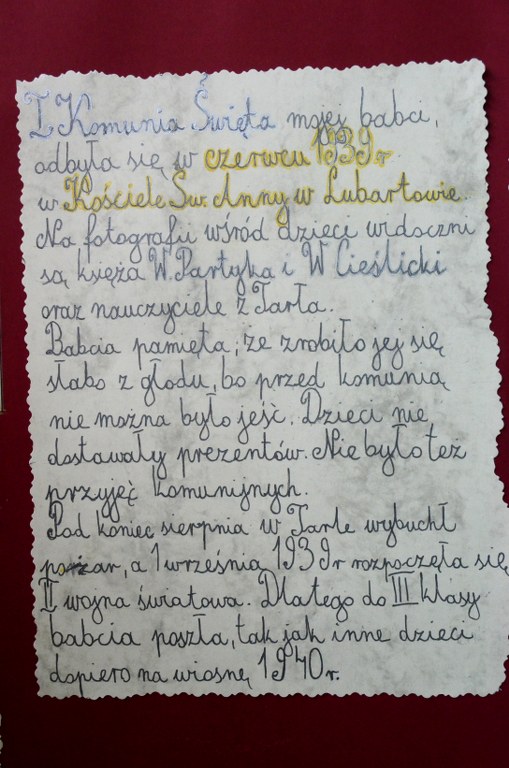 I Komunia Święta mojej babci,
odbyła się w czerwcu 1939r
w Kościele Św. Anny w Lubartowie.
Na fotografii wśród dzieci widoczni
są księża W. Partyka i W Cieślicki
oraz nauczyciele z Tarła.
Babcia pamięta, że zrobiło jej się
słabo z głodu, bo przed komunią
nie można było jeść. Dzieci nie
dostawały prezentów. Nie było też
przyjęć komunijnych.
Pod koniec sierpnia w Tarle wybuchł
pożar, a 1 września 1939r rozpoczęła się
II wojna światowa. Dlatego do III klasy
babcia poszła, tak jak inne dzieci
dopiero na wiosnę 1940r.